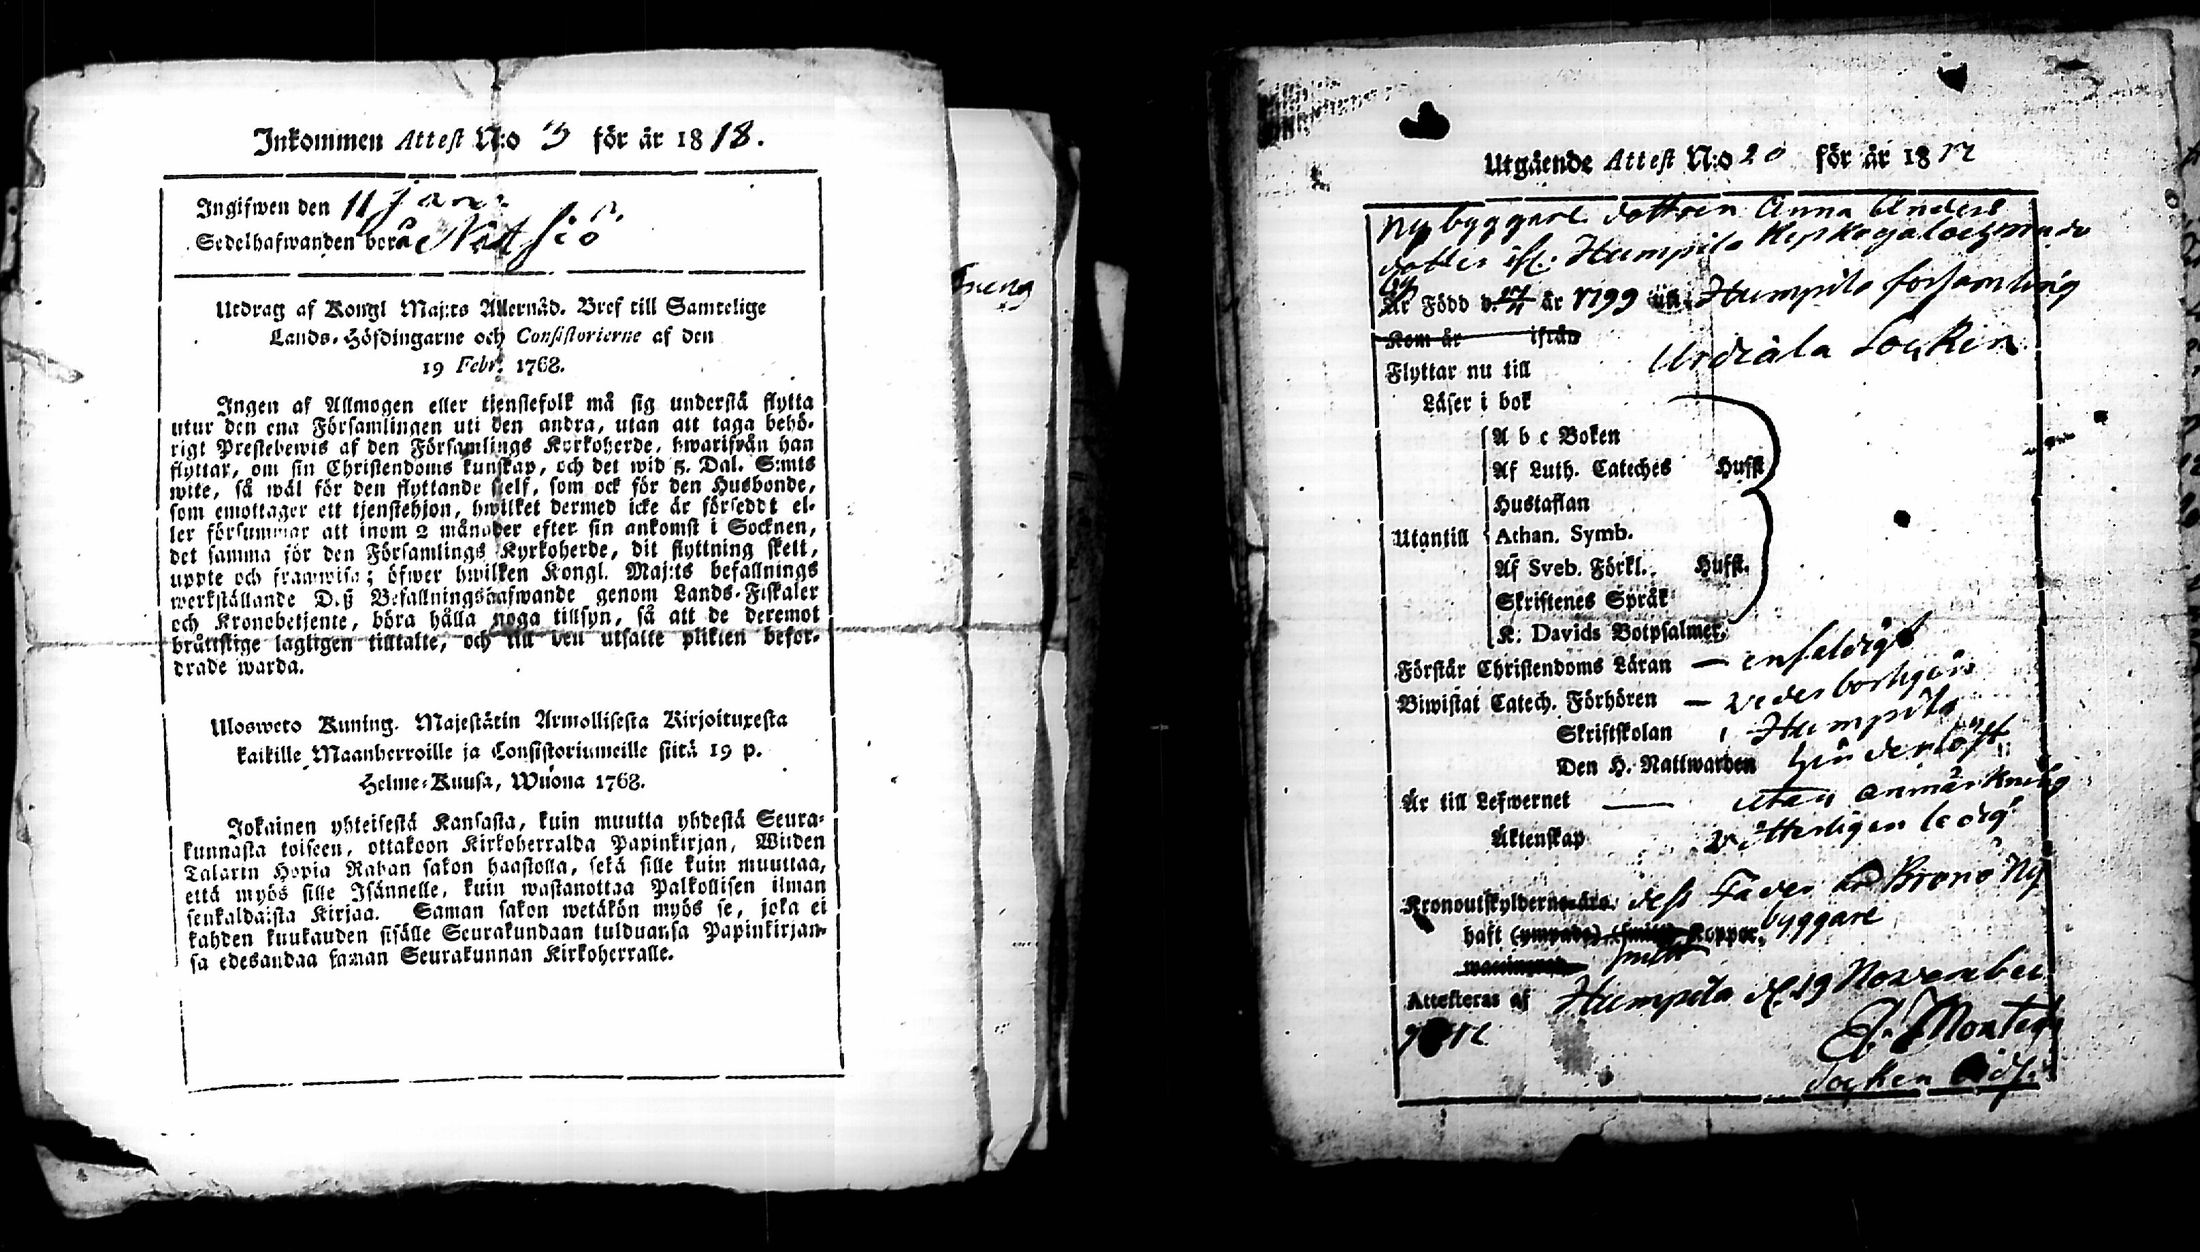 Inkommen Attest N:o 3 för år 1818.
Ingifwen den 11 Jan:
Sedelhafwanden bor å Nutsiö
Utdrag af Kongl Maj:ts Allernåd. Bref till Samtelige
Lands-Höfdingarne och Consistorierne af den
19 Febr. 1768.
Ingen af Allmogen eller tjenstefolk må sig understå flytta
utur den ena Församlingen uti den andra, utan att taga behö-
rigt Prestebewis af den Församlings Kyrkoherde, hwarifrån han
flyttar, om sin Christendoms kunskap, och det wid 5. Dal. S:mts
wite, så wäl för den flyttande sielf, som ock för den Husbonde,
som emottager ett tjenstehjon, hwilket dermed icke är förseddt el-
ler försummar att inom 2 månader efter sin ankomst i Socknen,
det samma för den Församlings Kyrkoherde, dit flyttning skett,
uppte och framwisa; öfwer hwilken Kongl. Maj:ts befallnings
werkställande D.ß Befallningshafwande genom Lands-Fiskaler
och Kronobetjente, böra hålla noga tillsyn, så att de deremot
bråttslige lagligen tilltalte, och till den utsatte plikten befor-
drade warda.
Uloswето Kuning. Majestätin Armollisesta Kirjoituxesta
kaikille Maanherroille ja Consistoriumeille siitä 19 p.
Helme-Kuusa, Wuona 1768.
Jokainen yhteisestä Kansasta, kuin muutta yhdestä Seura-
kunnasta toiseen, ottakoon Kirkoherralda Papinkirjan, Wiiden
Talarin Hopia Rahan sakon haastolla, sekä sille kuin muuttaa,
että myös sille Isännelle, kuin wastanottaa Palkollisen ilman
senkaldaista Kirjaa. Saman sakon wetäkön myös se, joka ei
kahden kuukauden sisälle Seurakundaan tulduansa Papinkirjan-
sa edesandaa saman Seurakunnan Kirkoherralle.
Utgående Attest N:o 20 för år 1817
Nybyggare dottren Anna Anders
dotter ifr. Humpila
by
Är Född d. år 1799 uti Humpila församling
Kom år ifrån
Flyttar nu till Urdiala Socken
Läser i bok
A b c Boken
Af Luth. Cateches Husfl
Hustaflan
Utantill Athan. Symb.
Af Sveb. Förkl. Husfl.
Skriftenes Språk
K. Davids Botpsalmer.
Förstår Christendoms Läran — enfaldigt
Biwistat Catech. Förhören — vederbörligen
Skriftskolan i Humpila
Den H. Nattwarden
Är till Lefwernet — utan anmärkning
Äktenskap witterligen ledig
Kronoutskylderne dess Fader Krono Ny
haft Koppor, byggare
Attesteras af Humpila d. 19 November